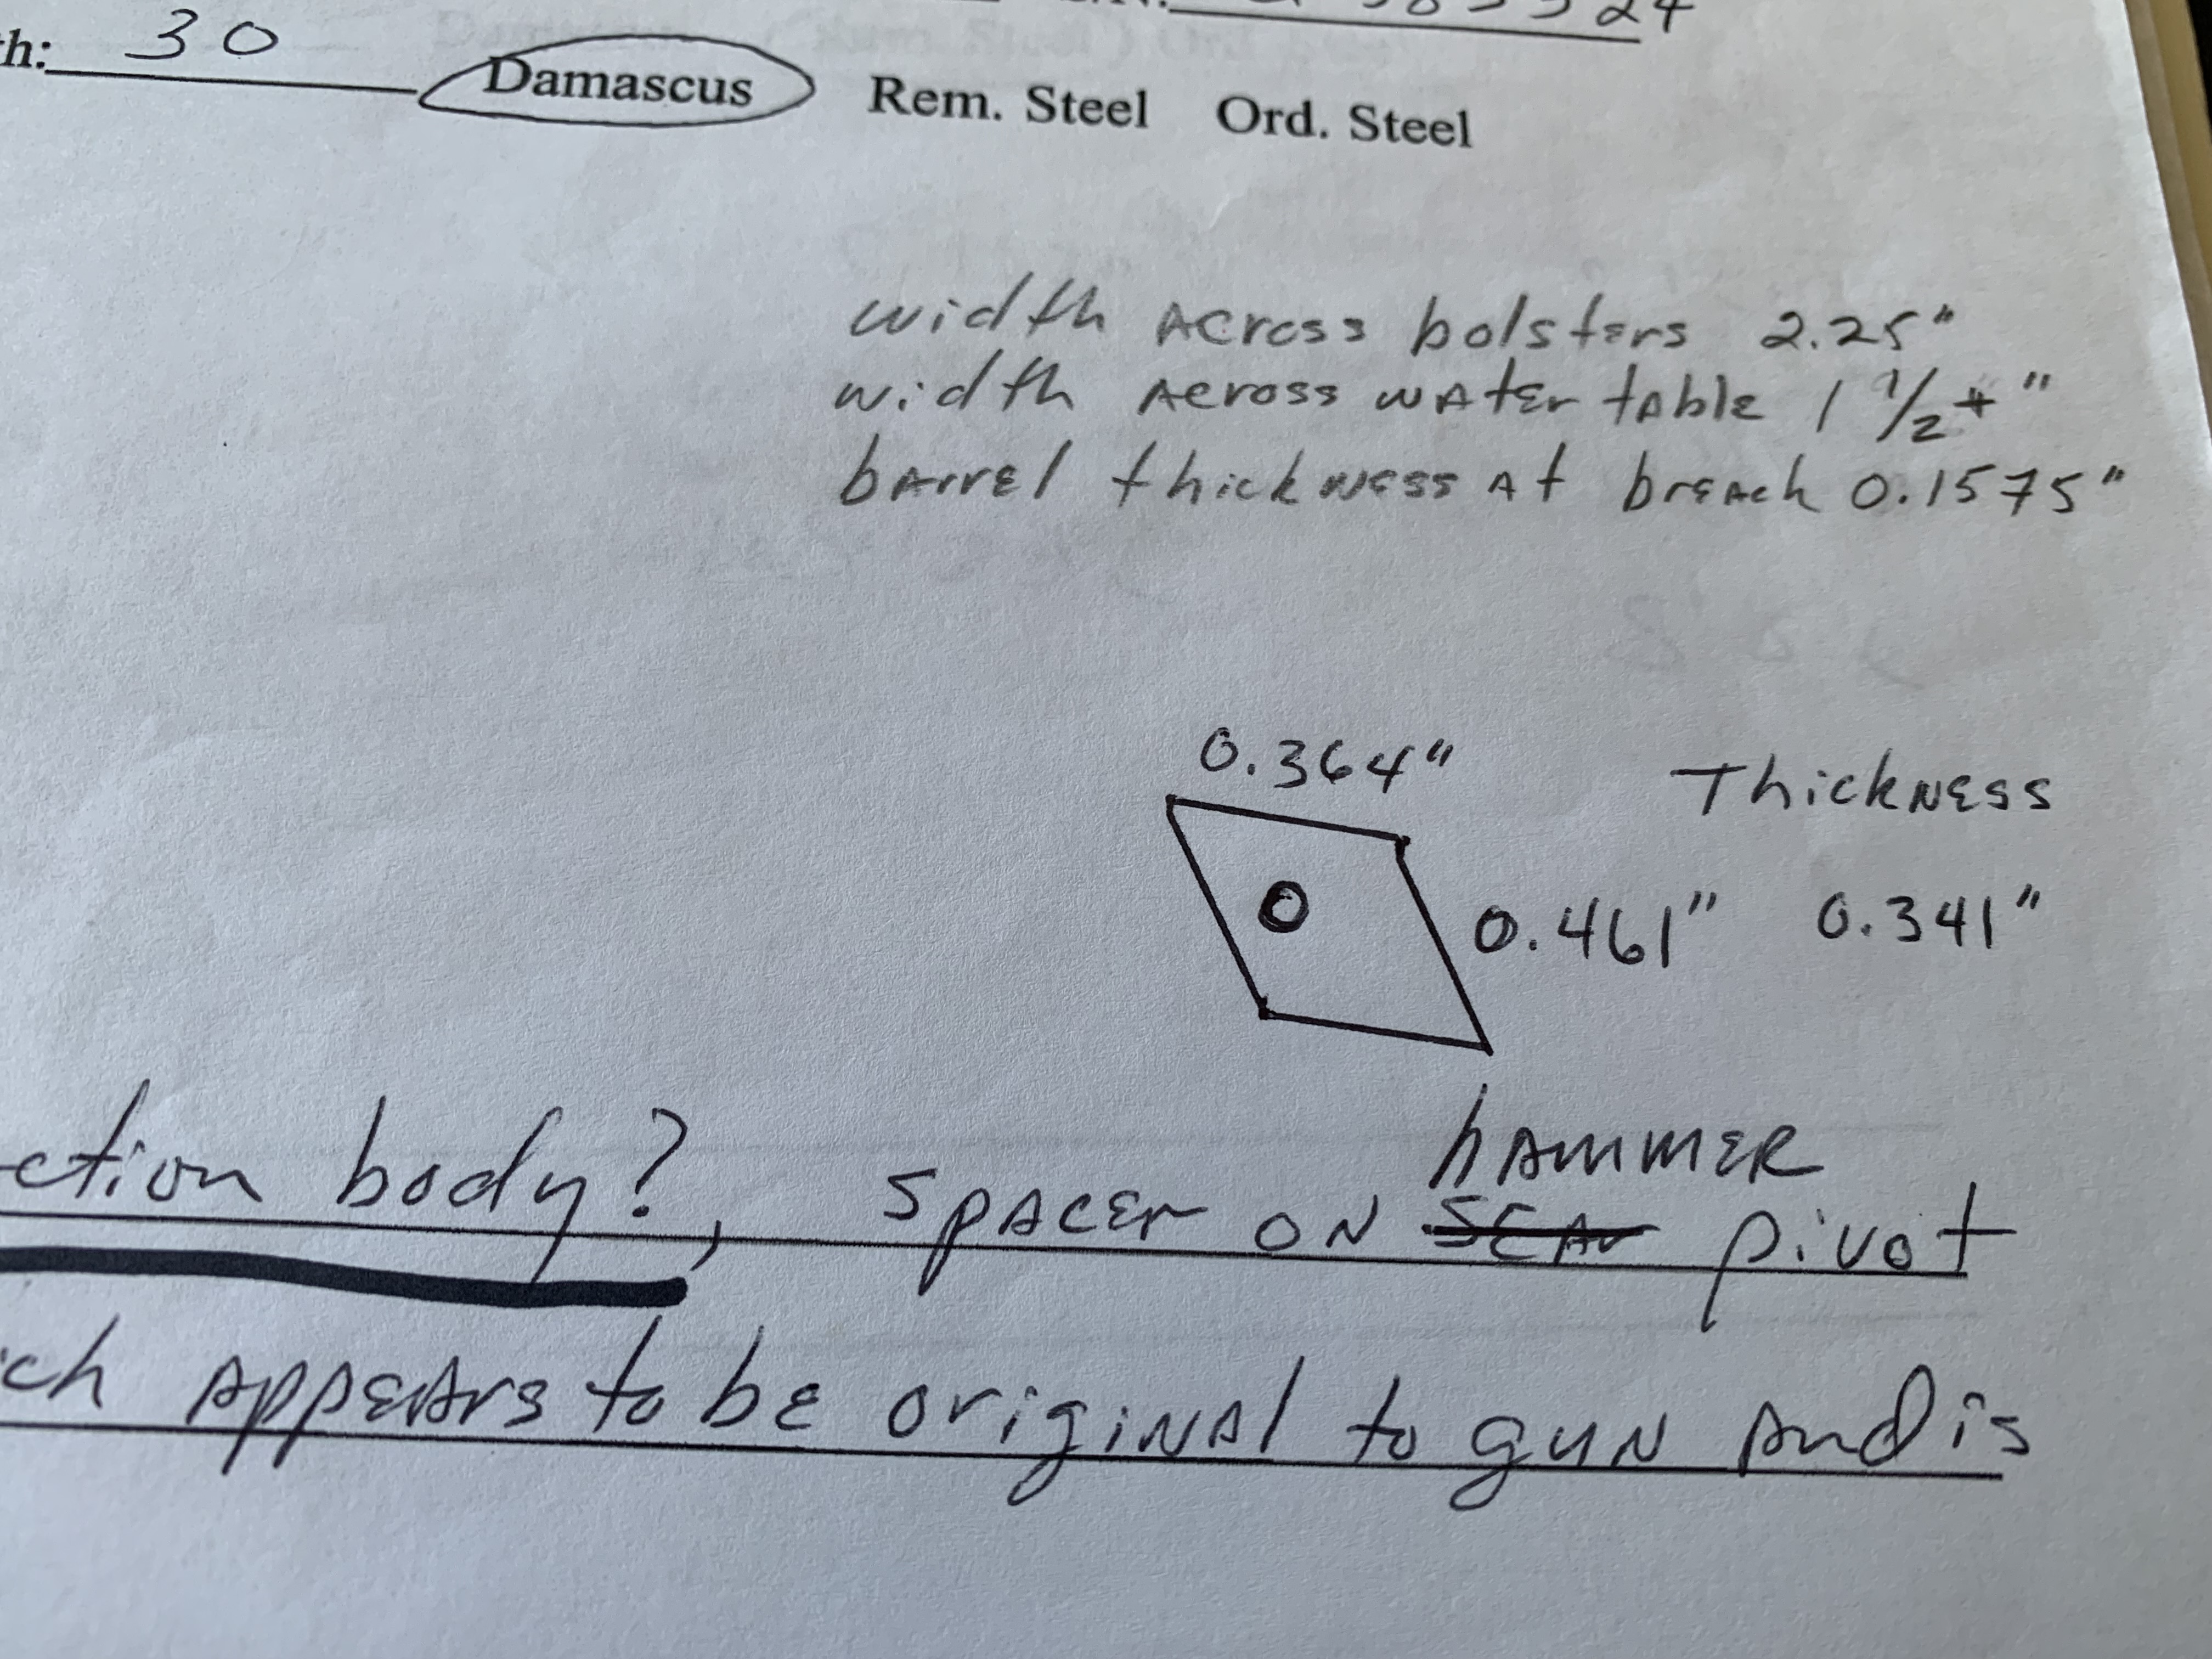 h: 30 Damascus Rem. Steel Ord. Steel
width across bolsters 2.25"
width across water table 1 1/2 + "
barrel thickness at breach 0.1575"
0.364" Thickness
0.461" 0.341"
hammer
ction body?, spacer on pivot
ch appears to be original to gun and is